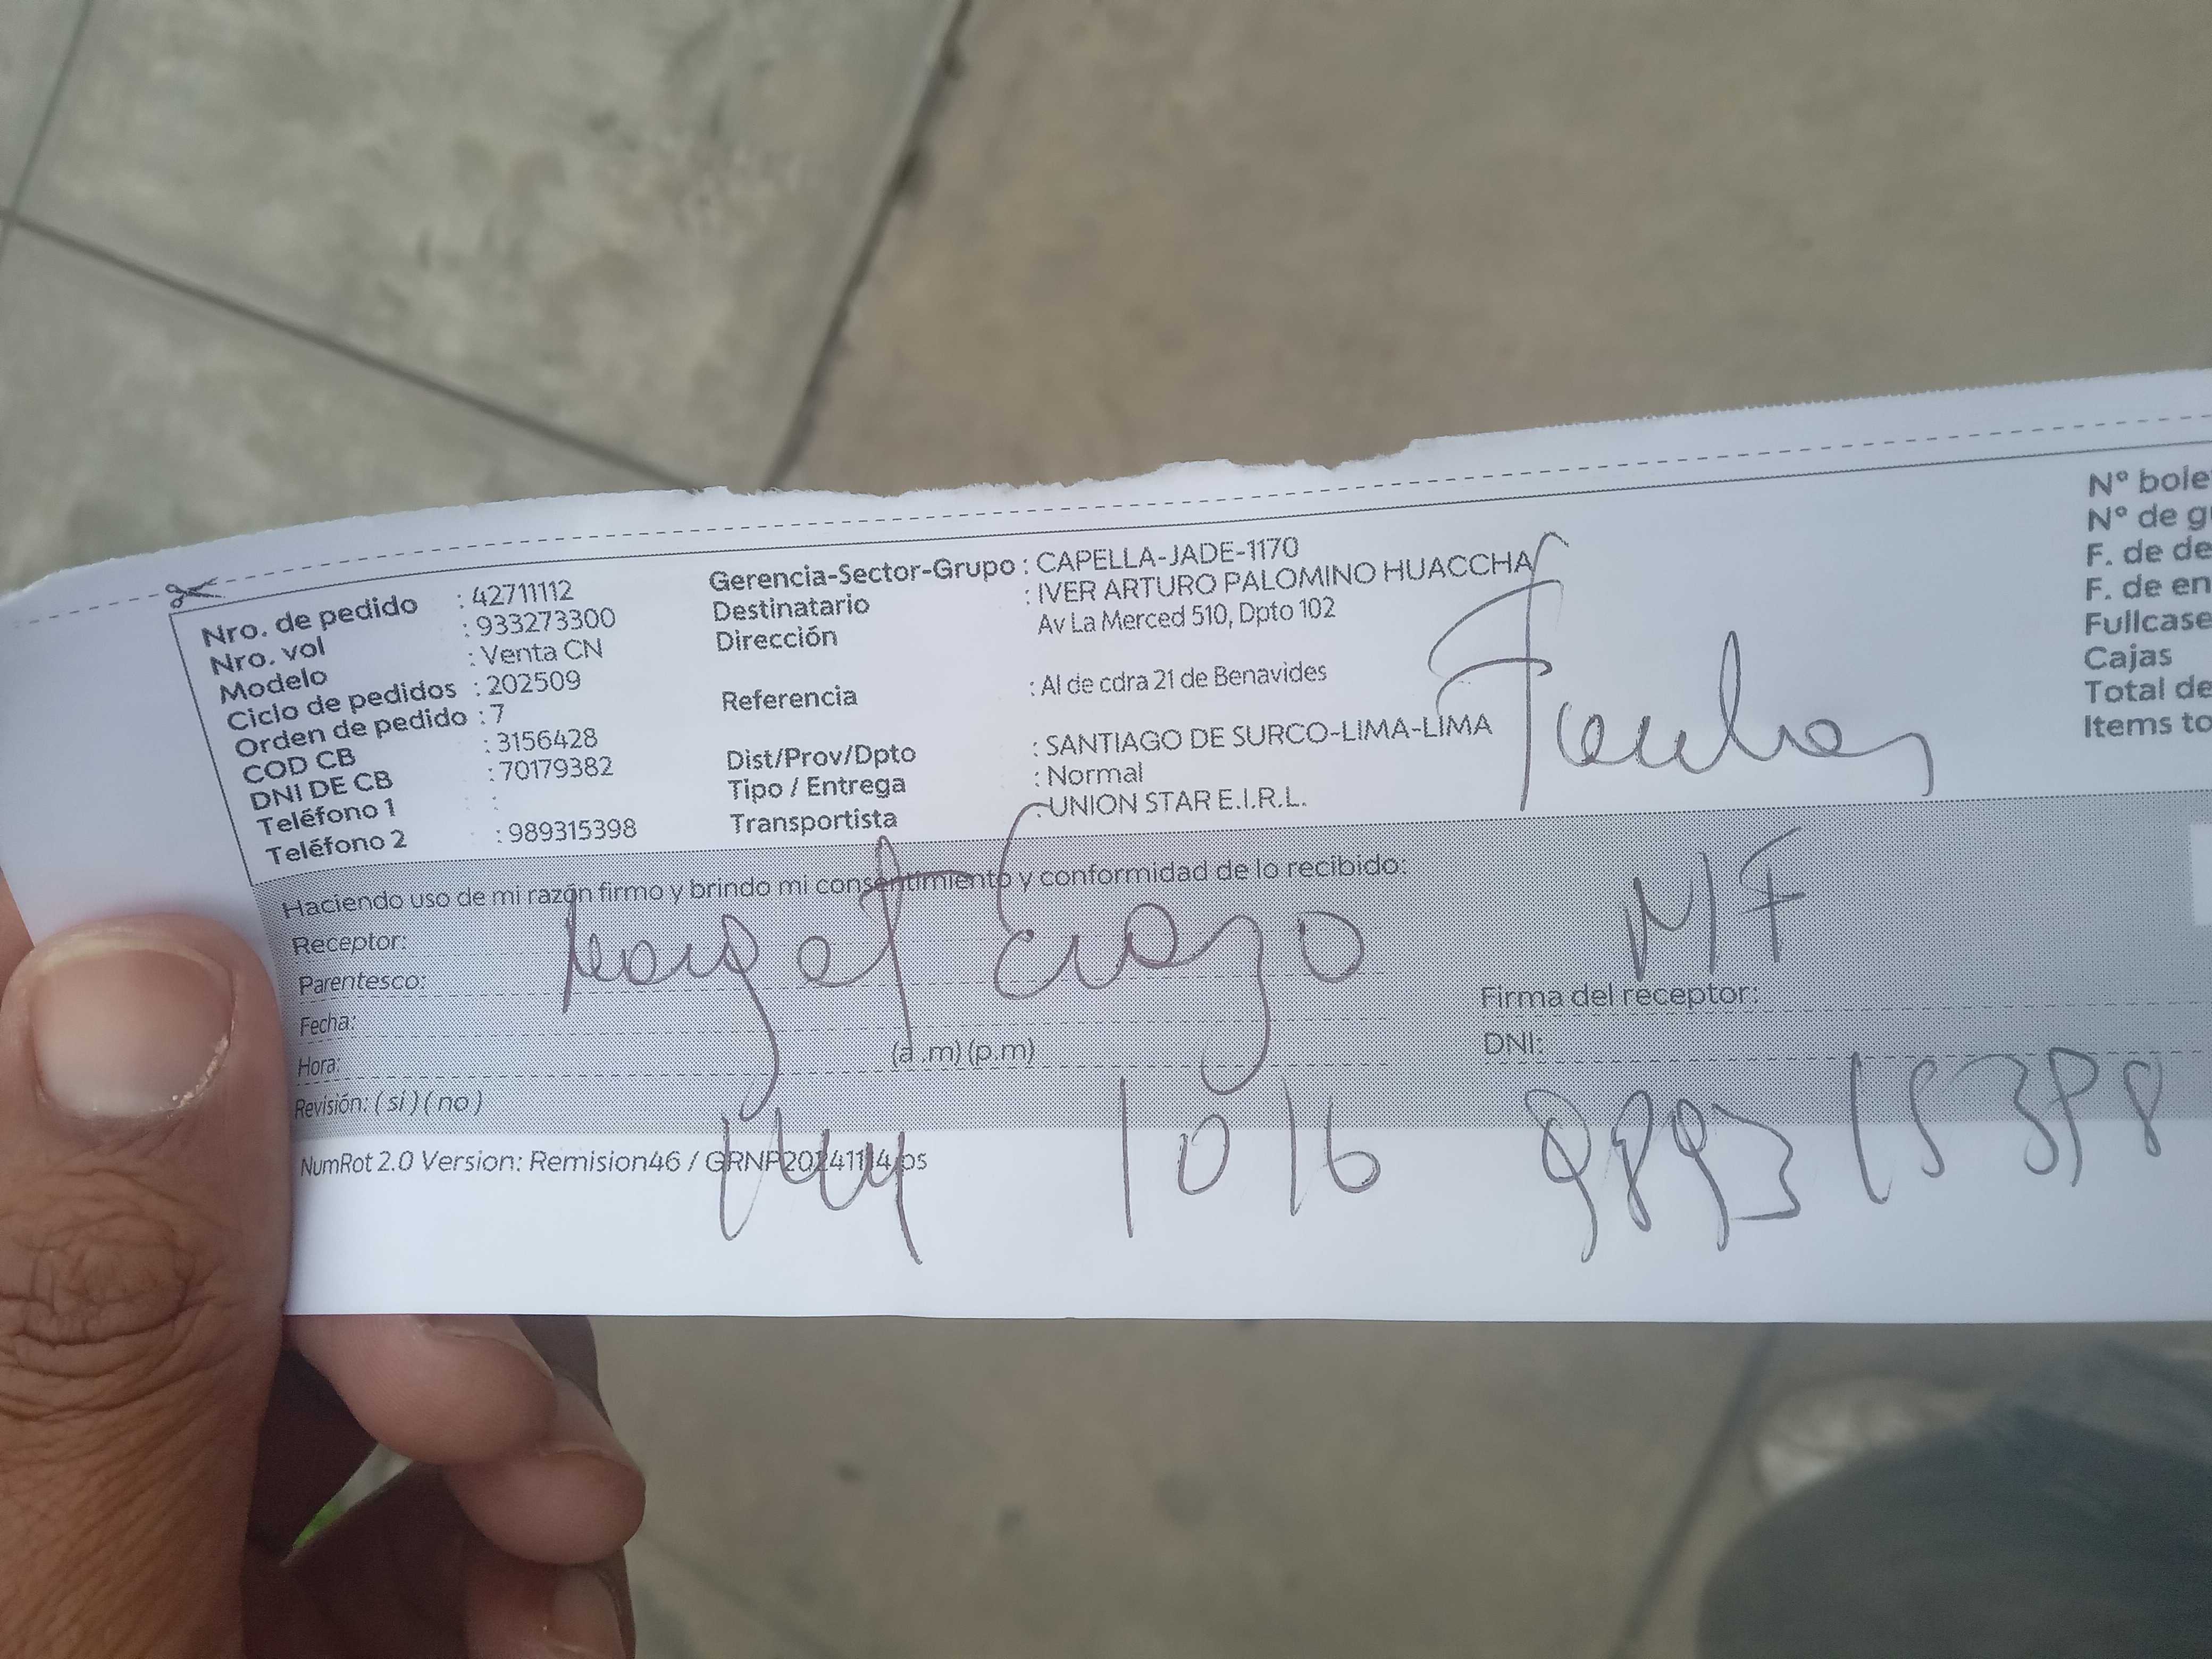 Nro. de pedido : 42711112
Nro. vol : 933273300
Modelo : Venta CN
Ciclo de pedidos : 202509
Orden de pedido : 7
COD CB : 3156428
DNI DE CB : 70179382
Teléfono 1 :
Teléfono 2 : 989315398
Gerencia-Sector-Grupo : CAPELLA-JADE-1170
Destinatario : IVER ARTURO PALOMINO HUACCHA
Dirección Av La Merced 510, Dpto 102
Referencia : Al de cdra 21 de Benavides
Dist/Prov/Dpto : SANTIAGO DE SURCO-LIMA-LIMA
Tipo / Entrega : Normal
Transportista : UNION STAR E.I.R.L.
N° bole
N° de g
F. de de
F. de en
Fullcase
Cajas
Total de
Items to
Haciendo uso de mi razón firmo y brindo mi consentimiento y conformidad de lo recibido:
Receptor:
Parentesco:
Fecha:
Hora: (a .m) (p.m)
Revisión: ( si ) ( no )
Firma del receptor:
DNI:
1016 989315398
NumRot 2.0 Version: Remision46 / GRNP20241114.ps